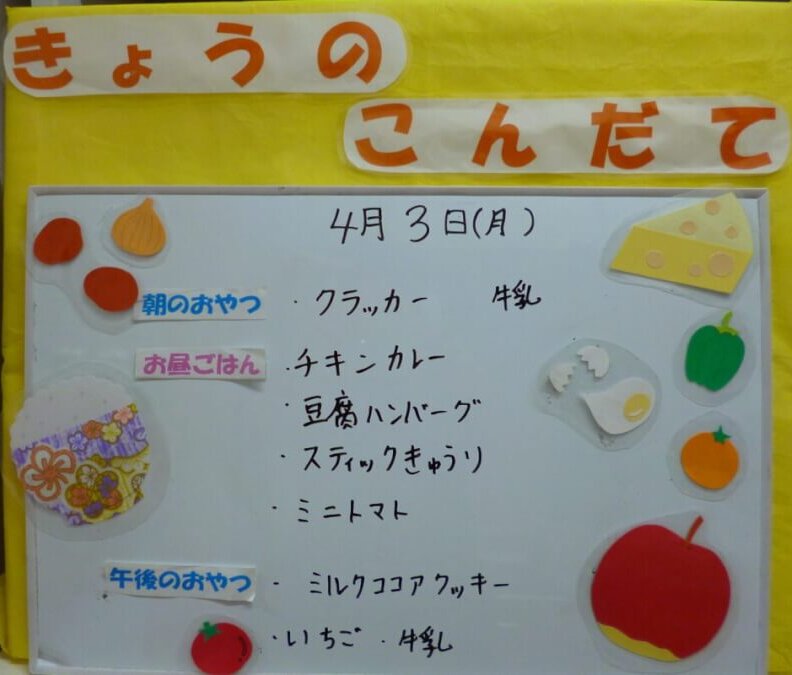 きょうの
こんだて
4月3日(月)
朝のおやつ ・クラッカー 牛乳
お昼ごはん ・チキンカレー
・豆腐ハンバーグ
・スティックきゅうり
・ミニトマト
午後のおやつ ・ミルクココアクッキー
・いちご・牛乳